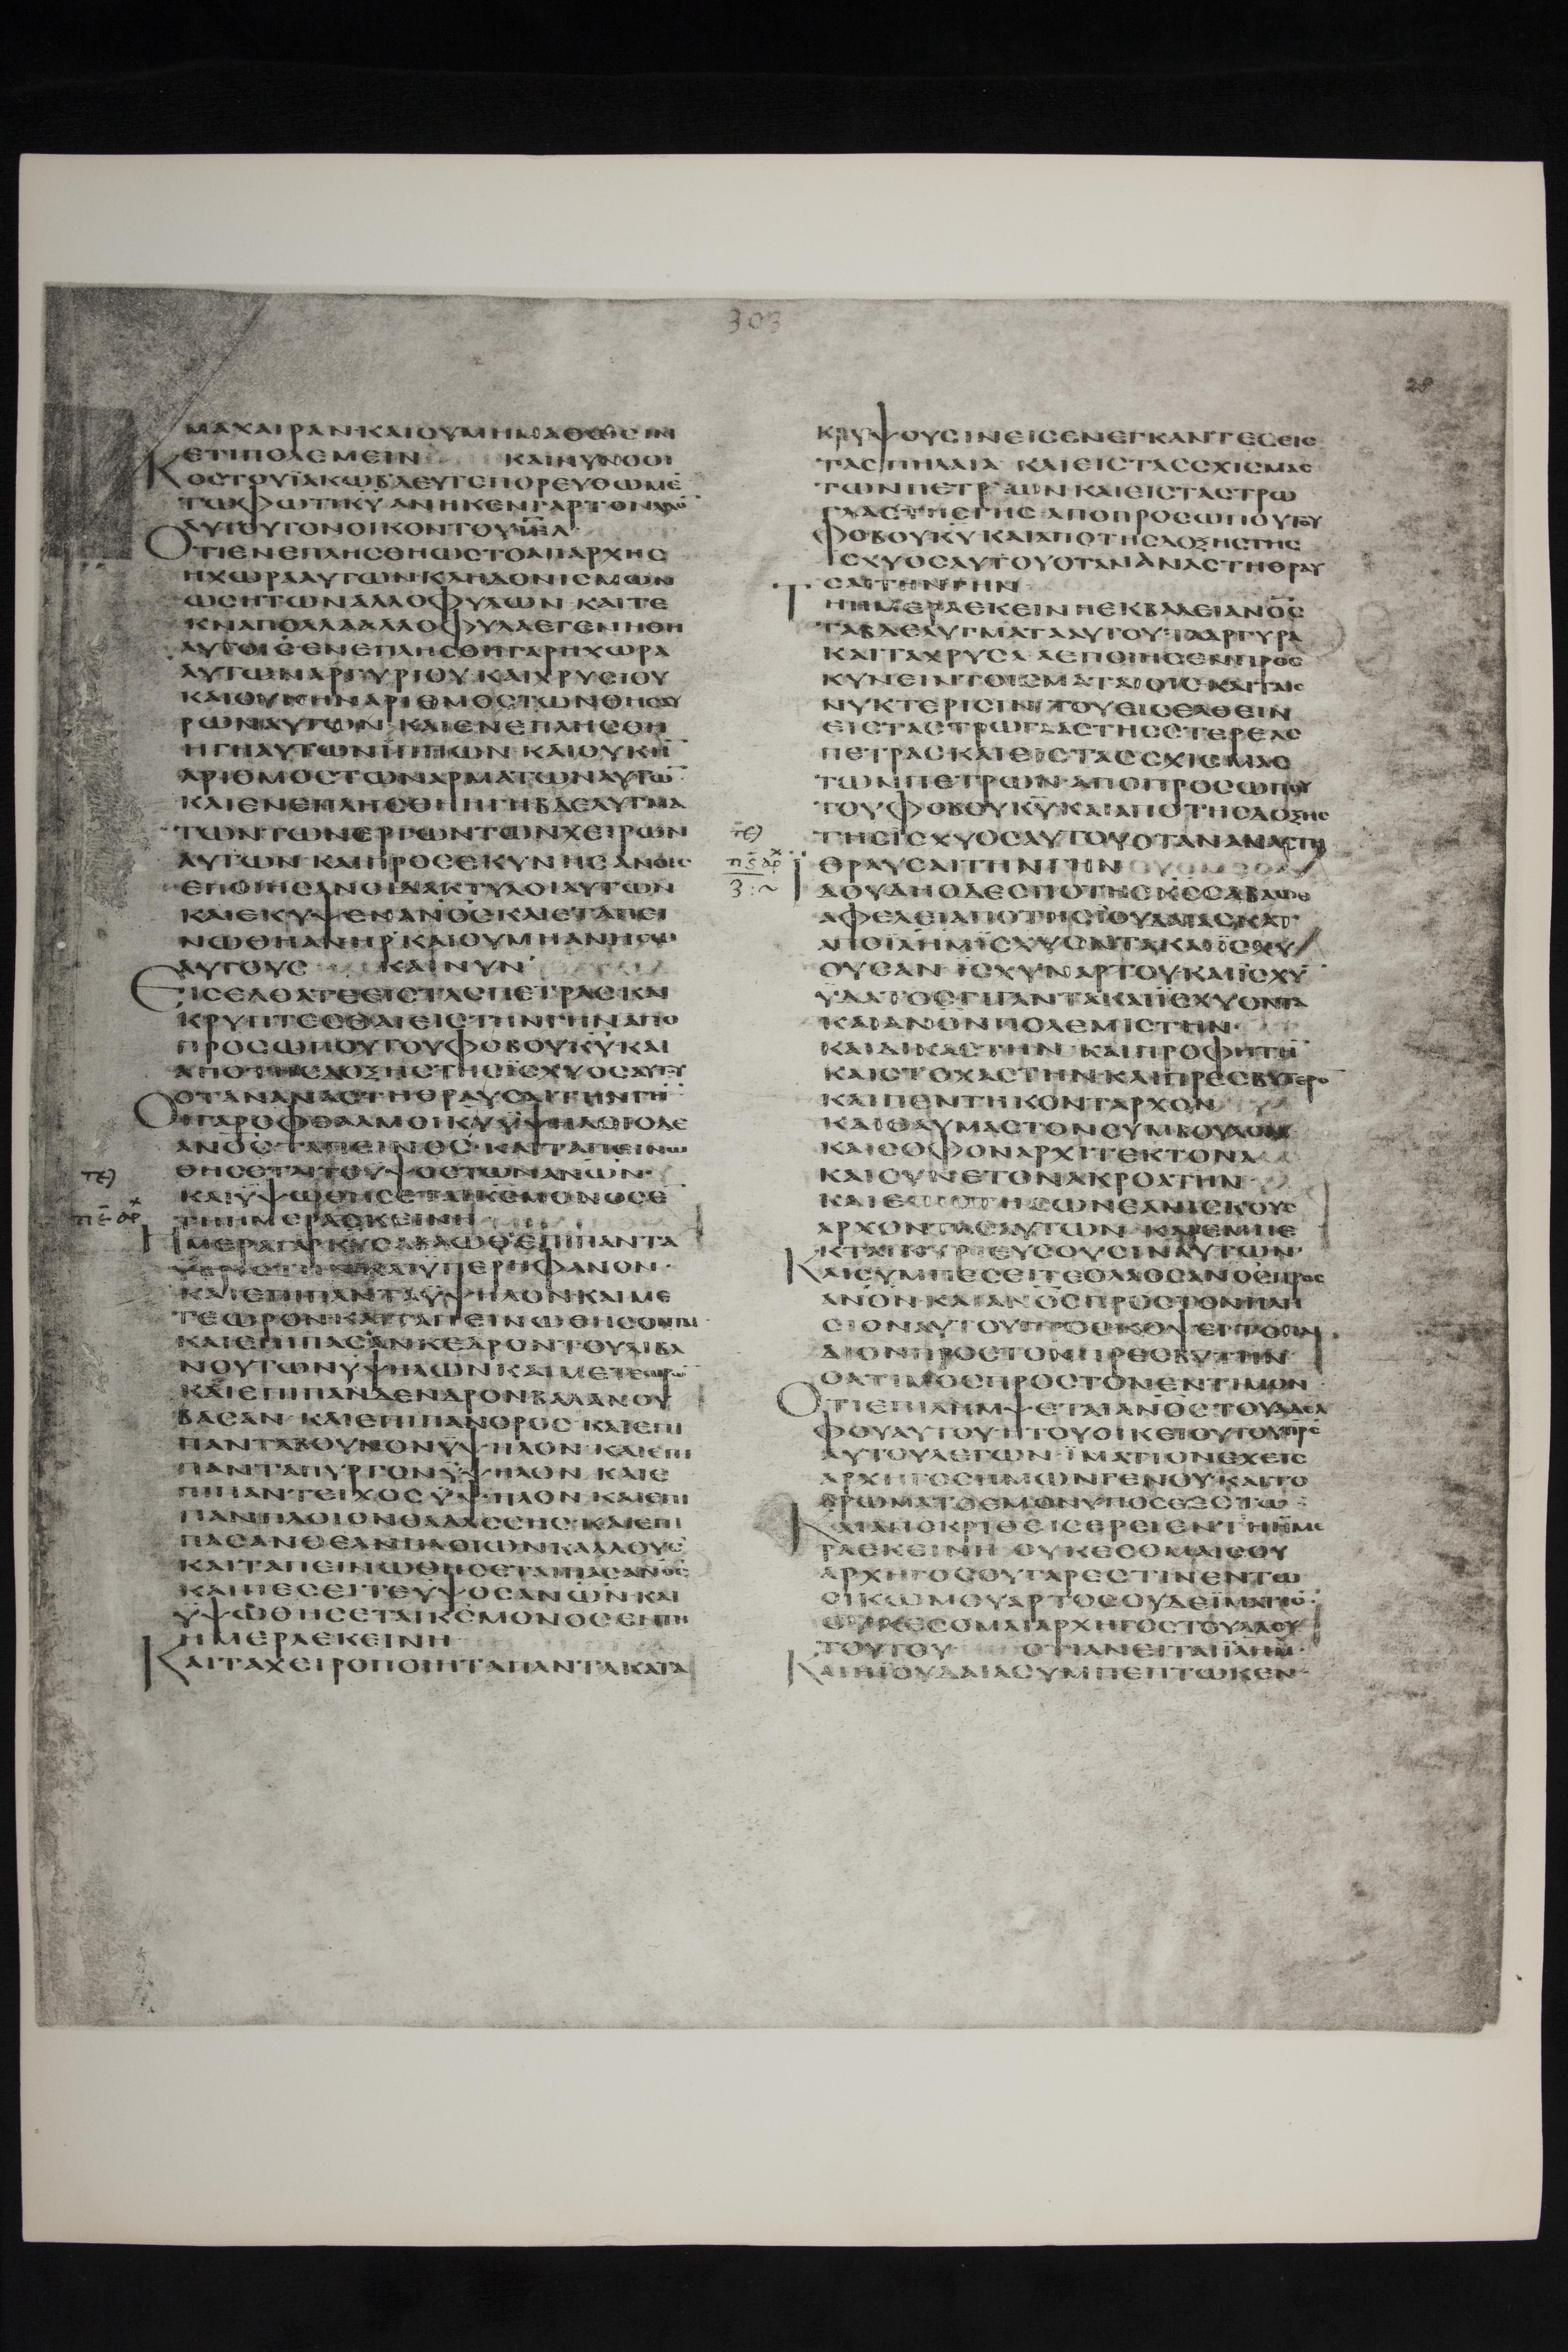 303
28
ΜΑΧΑΙΡΑΝ ΚΑΙ ΟΥ ΜΗ ΜΑΘΩΣΙΝ
ΕΤΙ ΠΟΛΕΜΕΙΝ ΚΑΙ ΝΥΝ Ο ΟΙ
ΚΟΣ ΤΟΥ ΪΑΚΩΒ ΔΕΥΤΕ ΠΟΡΕΥΘΩΜΕ̅
ΤΩ ΦΩΤΙ ΚΥ̅ ΑΝΗΚΕΝ ΓΑΡ ΤΟΝ ΛΑΟ̅
ΑΥΤΟΥ ΤΟΝ ΟΙΚΟΝ ΤΟΥ ΙΗ̅Λ
ΟΤΙ ΕΝΕΠΛΗΣΘΗ ΩΣ ΤΟ ΑΠ ΑΡΧΗΣ
Η ΧΩΡΑ ΑΥΤΩΝ ΚΛΗΔΟΝΙΣΜΩΝ
ΩΣ Η ΤΩΝ ΑΛΛΟΦΥΛΩΝ ΚΑΙ ΤΕ
ΚΝΑ ΠΟΛΛΑ ΑΛΛΟΦΥΛΑ ΕΓΕΝΗΘΗ
ΑΥΤΟΙΣ ΕΝΕΠΛΗΣΘΗ ΓΑΡ Η ΧΩΡΑ
ΑΥΤΩΝ ΑΡΓΥΡΙΟΥ ΚΑΙ ΧΡΥΣΙΟΥ
ΚΑΙ ΟΥΚ ΗΝ ΑΡΙΘΜΟΣ ΤΩΝ ΘΗΣΑΥ
ΡΩΝ ΑΥΤΩΝ ΚΑΙ ΕΝΕΠΛΗΣΘΗ
Η ΓΗ ΑΥΤΩΝ ΙΠΠΩΝ ΚΑΙ ΟΥΚ Η̅
ΑΡΙΘΜΟΣ ΤΩΝ ΑΡΜΑΤΩΝ ΑΥΤΩ̅
ΚΑΙ ΕΝΕΠΛΗΣΘΗ Η ΓΗ ΒΔΕΛΥΓΜΑ
ΤΩΝ ΤΩΝ ΕΡΓΩΝ ΤΩΝ ΧΕΙΡΩΝ
ΑΥΤΩΝ ΚΑΙ ΠΡΟΣΕΚΥΝΗΣΑΝ ΟΙΣ
ΕΠΟΙΗΣΑΝ ΟΙ ΔΑΚΤΥΛΟΙ ΑΥΤΩΝ
ΚΑΙ ΕΚΥΨΕΝ ΑΝΟ̅Σ ΚΑΙ ΕΤΑΠΕΙ
ΝΩΘΗ ΑΝΗΡ ΚΑΙ ΟΥ ΜΗ ΑΝΗΣΩ
ΑΥΤΟΥΣ ΚΑΙ ΝΥΝ
ΕΙΣΕΛΘΑΤΕ ΕΙΣ ΤΑΣ ΠΕΤΡΑΣ ΚΑΙ
ΚΡΥΠΤΕΣΘΑΙ ΕΙΣ ΤΗΝ ΓΗΝ ΑΠΟ
ΠΡΟΣΩΠΟΥ ΤΟΥ ΦΟΒΟΥ ΚΥ̅ ΚΑΙ
ΑΠΟ ΤΗΣ ΔΟΞΗΣ ΤΗΣ ΪΣΧΥΟΣ ΑΥΤΟΥ
ΟΤΑΝ ΑΝΑΣΤΗ ΘΡΑΥΣΑΙ ΤΗΝ ΓΗ̅
ΟΙ ΓΑΡ ΟΦΘΑΛΜΟΙ ΚΥ̅ ΫΨΗΛΟΙ Ο ΔΕ
ΑΝΟ̅Σ ΤΑΠΕΙΝΟΣ ΚΑΙ ΤΑΠΕΙΝΩ
ΘΗΣΕΤΑΙ ΤΟ ΥΨΟΣ ΤΩΝ ΑΝΩ̅Ν
ΚΑΙ ΫΨΩΘΗΣΕΤΑΙ ΚΣ̅ ΜΟΝΟΣ Ε̅
ΤΗ ΗΜΕΡΑ ΕΚΕΙΝΗ
ΗΜΕΡΑ ΓΑΡ ΚΥ̅ ΣΑΒΑΩΘ ΕΠΙ ΠΑΝΤΑ
ΥΒΡΙΣΤΗΝ ΚΑΙ ΥΠΕΡΗΦΑΝΟΝ
ΚΑΙ ΕΠΙ ΠΑΝΤΑ ΫΨΗΛΟΝ ΚΑΙ ΜΕ
ΤΕΩΡΟΝ ΚΑΙ ΤΑΠΕΙΝΩΘΗΣΟΝΤΑΙ
ΚΑΙ ΕΠΙ ΠΑΣΑΝ ΚΕΔΡΟΝ ΤΟΥ ΛΙΒΑ
ΝΟΥ ΤΩΝ ΥΨΗΛΩΝ ΚΑΙ ΜΕΤΕΩΡΩ
ΚΑΙ ΕΠΙ ΠΑΝ ΔΕΝΔΡΟΝ ΒΑΛΑΝΟΥ
ΒΑΣΑΝ ΚΑΙ ΕΠΙ ΠΑΝ ΟΡΟΣ ΚΑΙ ΕΠΙ
ΠΑΝΤΑ ΒΟΥΝΟΝ ΫΨΗΛΟΝ ΚΑΙ ΕΠΙ
ΠΑΝΤΑ ΠΥΡΓΟΝ ΫΨΗΛΟΝ ΚΑΙ Ε
ΠΙ ΠΑΝ ΤΕΙΧΟΣ ΫΨΗΛΟΝ ΚΑΙ ΕΠΙ
ΠΑΝ ΠΛΟΙΟΝ ΘΑΛΑΣΣΗΣ ΚΑΙ ΕΠΙ
ΠΑΣΑΝ ΘΕΑΝ ΠΛΟΙΩΝ ΚΑΛΛΟΥΣ
ΚΑΙ ΤΑΠΕΙΝΩΘΗΣΕΤΑΙ ΠΑΣ ΑΝΟ̅Σ
ΚΑΙ ΠΕΣΕΙΤΕ ΥΨΟΣ ΑΝΩ̅Ν ΚΑΙ
ΫΨΩΘΗΣΕΤΑΙ ΚΣ̅ ΜΟΝΟΣ ΕΝ ΤΗ
ΗΜΕΡΑ ΕΚΕΙΝΗ
ΚΑΙ ΤΑ ΧΕΙΡΟΠΟΙΗΤΑ ΠΑΝΤΑ ΚΑΤΑ
ΚΡΥΨΟΥΣΙΝ ΕΙΣΕΝΕΓΚΑΝΤΕΣ ΕΙΣ
ΤΑ ΣΠΗΛΑΙΑ ΚΑΙ ΕΙΣ ΤΑΣ ΣΧΙΣΜΑΣ
ΤΩΝ ΠΕΤΡΩΝ ΚΑΙ ΕΙΣ ΤΑΣ ΤΡΩ
ΓΛΑΣ ΤΗΣ ΓΗΣ ΑΠΟ ΠΡΟΣΩΠΟΥ ΤΟΥ
ΦΟΒΟΥ ΚΥ̅ ΚΑΙ ΑΠΟ ΤΗΣ ΔΟΞΗΣ ΤΗΣ
ΙΣΧΥΟΣ ΑΥΤΟΥ ΟΤΑΝ ΑΝΑΣΤΗ ΘΡΑΥ
ΣΑΙ ΤΗΝ ΓΗΝ
ΤΗ ΗΜΕΡΑ ΕΚΕΙΝΗ ΕΚΒΑΛΕΙ ΑΝΟ̅Σ
ΤΑ ΒΔΕΛΥΓΜΑΤΑ ΑΥΤΟΥ ΤΑ ΑΡΓΥΡΑ
ΚΑΙ ΤΑ ΧΡΥΣΑ Α ΕΠΟΙΗΣΕΝ ΠΡΟΣ
ΚΥΝΕΙΝ ΤΟΙΣ ΜΑΤΑΙΟΙΣ ΚΑΙ ΤΑΙΣ
ΝΥΚΤΕΡΙΣΙΝ ΤΟΥ ΕΙΣΕΛΘΕΙΝ
ΕΙΣ ΤΑΣ ΤΡΩΓΛΑΣ ΤΗΣ ΣΤΕΡΕΑΣ
ΠΕΤΡΑΣ ΚΑΙ ΕΙΣ ΤΑΣ ΣΧΙΣΜΑΣ
ΤΩΝ ΠΕΤΡΩΝ ΑΠΟ ΠΡΟΣΩΠΟΥ
ΤΟΥ ΦΟΒΟΥ ΚΥ̅ ΚΑΙ ΑΠΟ ΤΗΣ ΔΟΞΗΣ
ΤΗΣ ΙΣΧΥΟΣ ΑΥΤΟΥ ΟΤΑΝ ΑΝΑΣΤΗ
ΘΡΑΥΣΑΙ ΤΗΝ ΓΗΝ
ΙΔΟΥ ΔΗ Ο ΔΕΣΠΟΤΗΣ ΚΣ̅ ΣΑΒΑΩΘ
ΑΦΕΛΕΙ ΑΠΟ ΤΗΣ ΪΟΥΔΑΙΑΣ ΚΑΙ
ΑΠΟ ΪΛΗΜ ΪΣΧΥΟΝΤΑ ΚΑΙ ΪΣΧΥ
ΟΥΣΑΝ ΪΣΧΥΝ ΑΡΤΟΥ ΚΑΙ ΪΣΧΥ
ΫΔΑΤΟΣ ΓΙΓΑΝΤΑ ΚΑΙ ΪΣΧΥΟΝΤΑ
ΚΑΙ ΑΝΟ̅Ν ΠΟΛΕΜΙΣΤΗΝ
ΚΑΙ ΔΙΚΑΣΤΗΝ ΚΑΙ ΠΡΟΦΗΤΗ̅
ΚΑΙ ΣΤΟΧΑΣΤΗΝ ΚΑΙ ΠΡΕΣΒΥΤΕΡΟ̅
ΚΑΙ ΠΕΝΤΗΚΟΝΤΑΡΧΟΝ
ΚΑΙ ΘΑΥΜΑΣΤΟΝ ΣΥΜΒΟΥΛΟΝ
ΚΑΙ ΣΟΦΟΝ ΑΡΧΙΤΕΚΤΟΝΑ
ΚΑΙ ΣΥΝΕΤΟΝ ΑΚΡΟΑΤΗΝ
ΚΑΙ ΕΠΙΣΤΗΣΩ ΝΕΑΝΙΣΚΟΥΣ
ΑΡΧΟΝΤΑΣ ΑΥΤΩΝ ΚΑΙ ΕΜΠΕ
ΚΤΑΙ ΚΥΡΙΕΥΣΟΥΣΙΝ ΑΥΤΩΝ
ΚΑΙ ΣΥΜΠΕΣΕΙΤΕ Ο ΛΑΟΣ ΑΝΟ̅Σ ΠΡΟΣ
ΑΝΟ̅Ν ΚΑΙ ΑΝΟ̅Σ ΠΡΟΣ ΤΟΝ ΠΛΗ
ΣΙΟΝ ΑΥΤΟΥ ΠΡΟΣΚΟΨΕΙ ΤΟ ΠΑΙ
ΔΙΟΝ ΠΡΟΣ ΤΟΝ ΠΡΕΣΒΥΤΗΝ
Ο ΑΤΙΜΟΣ ΠΡΟΣ ΤΟΝ ΕΝΤΙΜΟΝ
ΟΤΙ ΕΠΙΛΗΜΨΕΤΑΙ ΑΝΟ̅Σ ΤΟΥ ΑΔΕΛ
ΦΟΥ ΑΥΤΟΥ Η ΤΟΥ ΟΙΚΕΙΟΥ ΤΟΥ ΠΡΣ
ΑΥΤΟΥ ΛΕΓΩΝ ΪΜΑΤΙΟΝ ΕΧΕΙΣ
ΑΡΧΗΓΟΣ ΗΜΩΝ ΓΕΝΟΥ ΚΑΙ ΤΟ
ΒΡΩΜΑ ΤΟ ΕΜΟΝ ΥΠΟ ΣΕ ΕΣΤΩ
ΚΑΙ ΑΠΟΚΡΙΘΕΙΣ ΕΡΕΙ ΕΝ ΤΗ ΗΜΕ
ΡΑ ΕΚΕΙΝΗ ΟΥΚ ΕΣΟΜΑΙ ΣΟΥ
ΑΡΧΗΓΟΣ ΟΥ ΓΑΡ ΕΣΤΙΝ ΕΝ ΤΩ
ΟΙΚΩ ΜΟΥ ΑΡΤΟΣ ΟΥΔΕ ΪΜΑΤΙΟ̅
ΟΥΚ ΕΣΟΜΑΙ ΑΡΧΗΓΟΣ ΤΟΥ ΛΑΟΥ
ΤΟΥΤΟΥ ΟΤΙ ΑΝΕΙΤΑΙ ΪΛΗΜ
ΚΑΙ Η ΪΟΥΔΑΙΑ ΣΥΜΠΕΠΤΩΚΕΝ